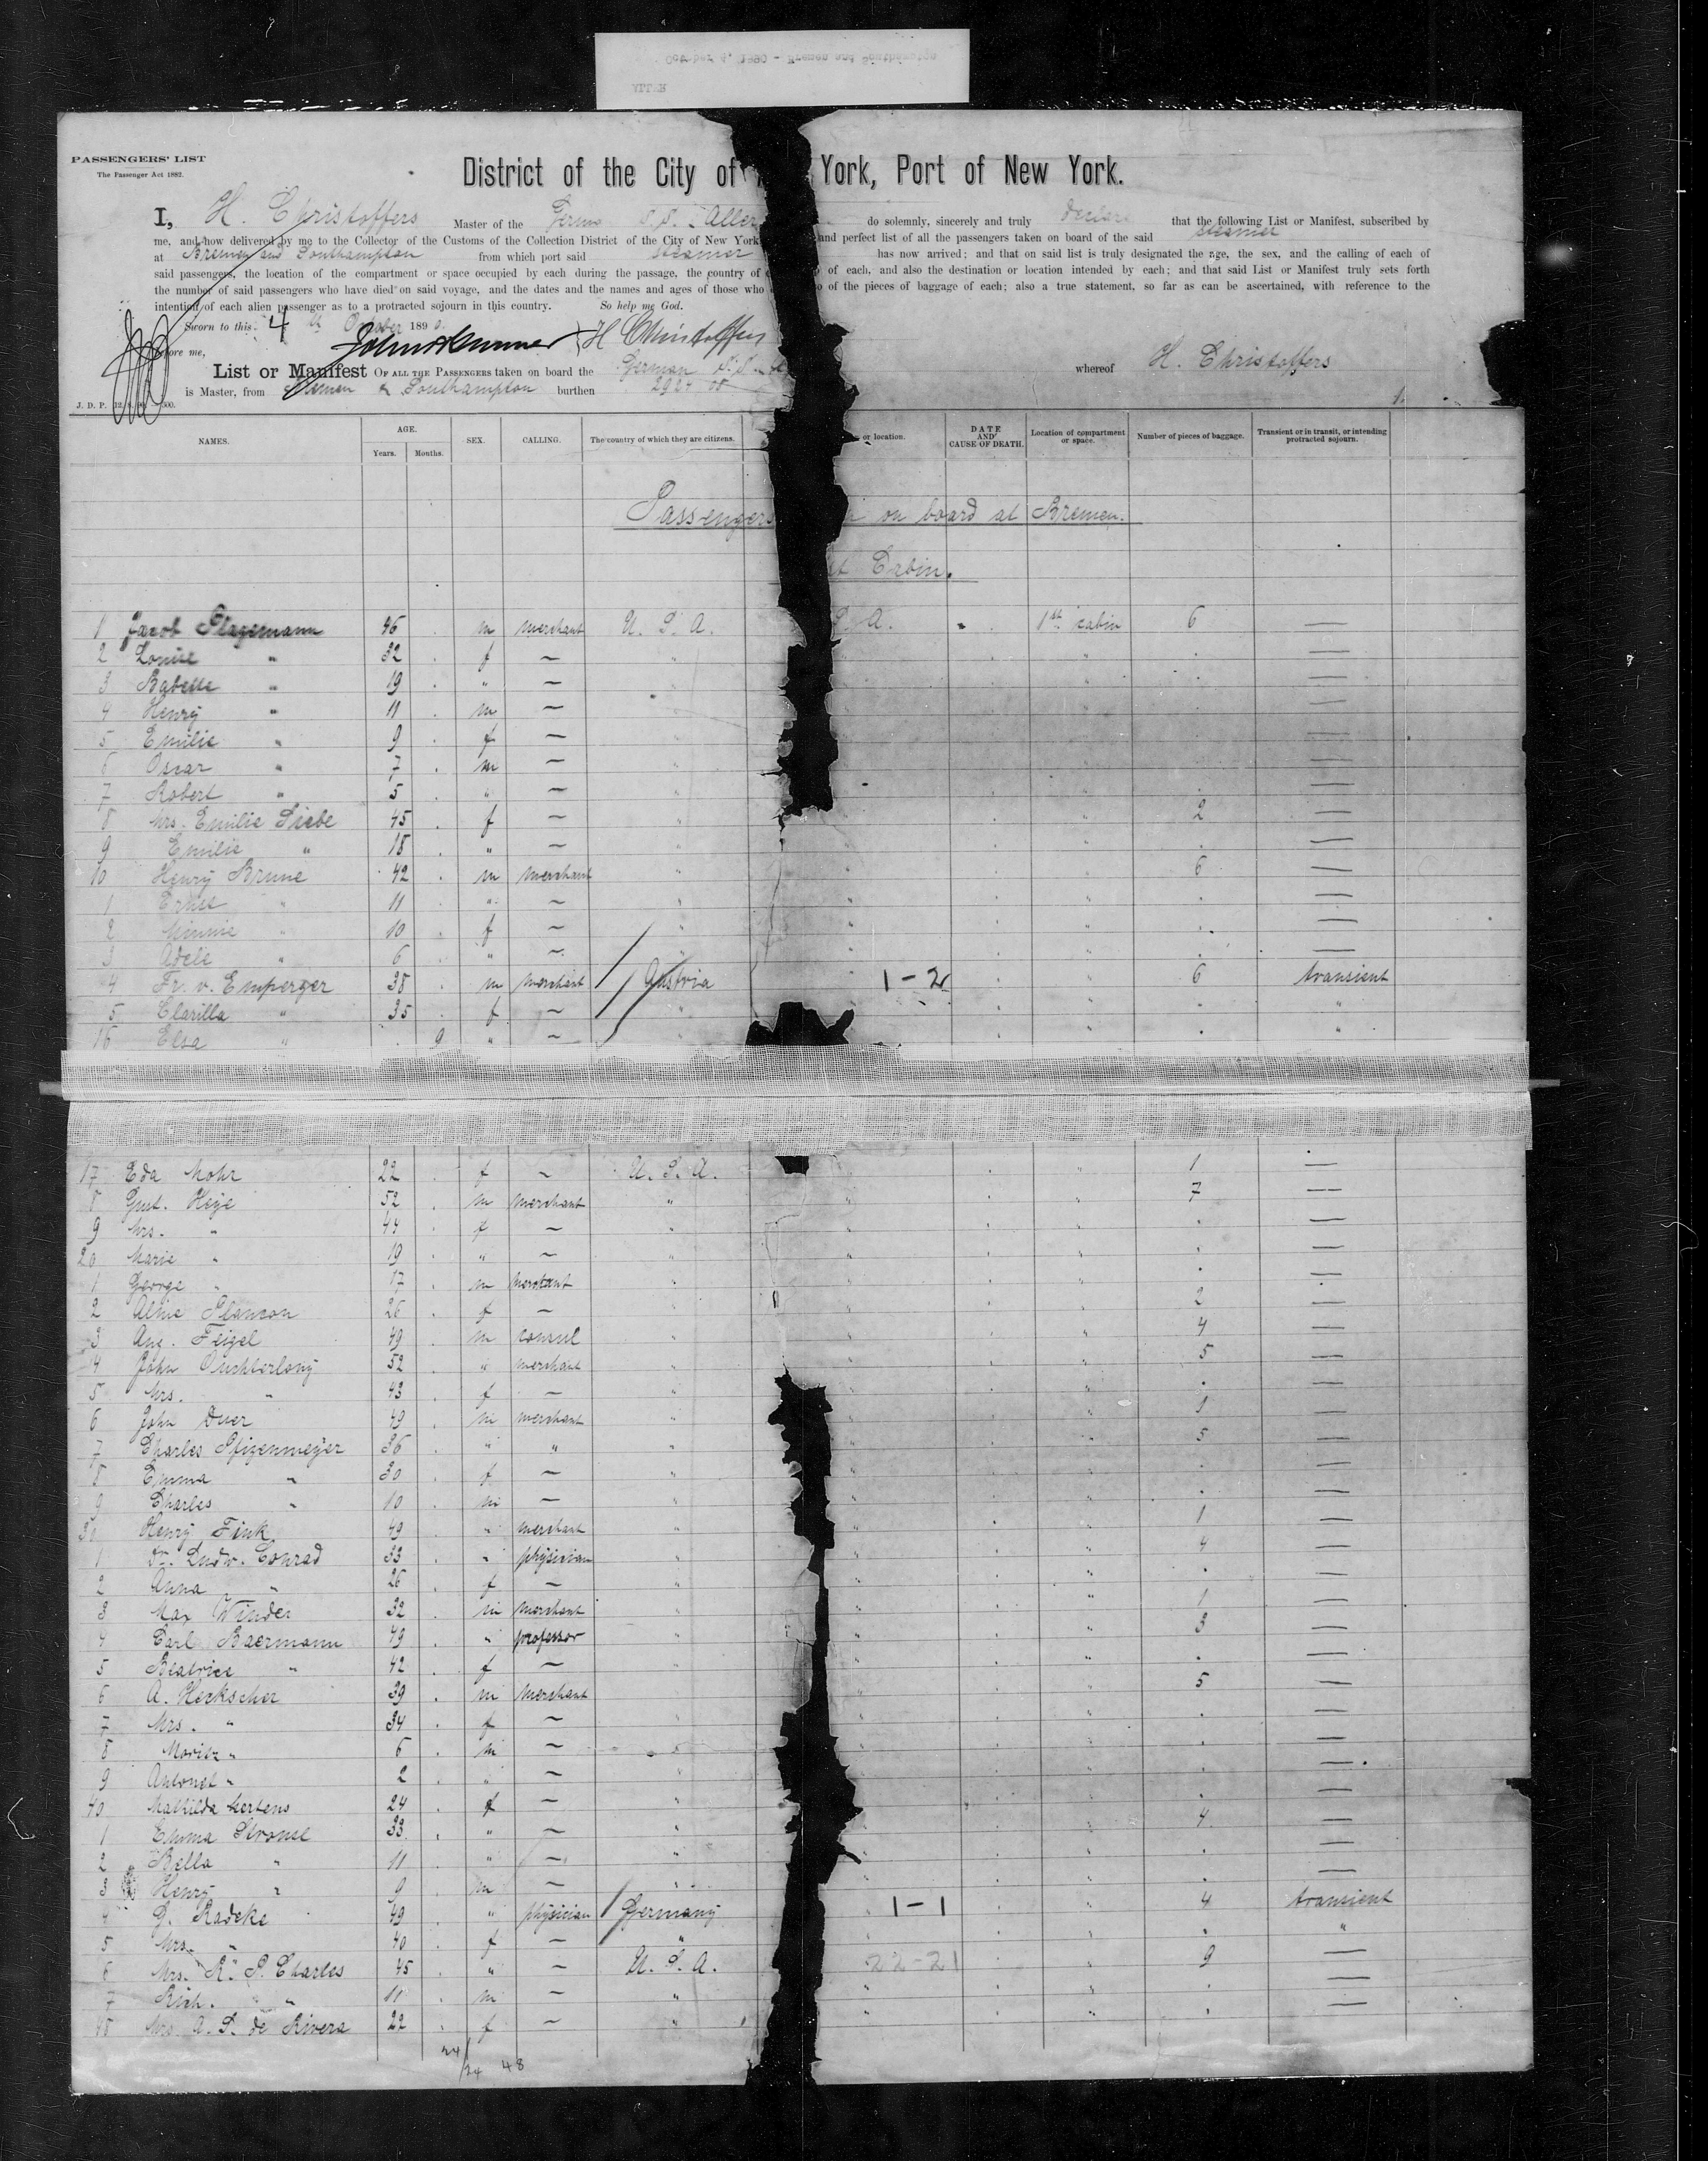 October 4, 1890 - Bremen and Southampton
ALLER
PASSENGERS' LIST
The Passenger Act 1882.
District of the City of York, Port of New York.
I, H. Christoffers Master of the German S.S. Aller do solemnly, sincerely and truly declare that the following List or Manifest, subscribed by
me, and now delivered by me to the Collector of the Customs of the Collection District of the City of New York and perfect list of all the passengers taken on board of the said steamer
at Bremen and Southampton from which port said steamer has now arrived; and that on said list is truly designated the age, the sex, and the calling of each of
said passengers, the location of the compartment or space occupied by each during the passage, the country of of each, and also the destination or location intended by each; and that said List or Manifest truly sets forth
the number of said passengers who have died on said voyage, and the dates and the names and ages of those who of the pieces of baggage of each; also a true statement, so far as can be ascertained, with reference to the
intention of each alien passenger as to a protracted sojourn in this country. So help me God.
Sworn to this 4th October 1890 H Christoffers
before me,
List or Manifest OF ALL THE PASSENGERS taken on board the German S.S. whereof H. Christoffers
is Master, from Bremen & Southampton burthen 2924 1.
J. D. P.
NAMES. AGE. Years. Months. SEX. CALLING. The country of which they are citizens. or location. DATE AND CAUSE OF DEATH. Location of compartment or space. Number of pieces of baggage. Transient or in transit, or intending protracted sojourn.
Passengers on board at Bremen.
Cabin.
1 Jacob Plagemann 46 m merchant U. S. A. S. A. " 1st cabin 6 —
2 Louise " 32 f — " " —
3 Babette " 19 " — " —
4 Henry " 11 m — " —
5 Emilie " 9 f — —
6 Oscar " 7 m — " —
7 Robert " 5 " — " —
8 Mrs. Emilie Siebe 45 f — " " " 2 —
9 Emilie " 18 " — " " —
10 Henry Brune 42 m merchant " " " 6 —
1 Ernst " 11 " — " " " —
2 Minnie " 10 f — " " " —
3 Adele " 6 " — " " " —
4 Fr. v. Emperger 38 m merchant Austria " 1-2 " 6 transient
5 Clarilla " 35 f — " " " "
16 Elsa " 9 " — " " "
17 Eda Mohr 22 f — U. S. A. " 1 —
8 Gust. Heye 52 m merchant " " " 7 —
9 Mrs. " 44 f — " " " —
20 Marie " 19 " — " " " —
1 George " 17 m merchant " " " —
2 Aline Plancon 26 f — " " " 2 —
3 Aug. Feigel 49 m consul " " " 4 —
4 John Ouchterlony 52 " merchant " " " 5 —
5 Mrs. " 43 f — " " " —
6 John Duer 49 m merchant " " " 1 —
7 Charles Pfizenmeyer 36 " " " " " 5 —
8 Emma " 30 f — " " " —
9 Charles " 10 m — " " " —
30 Henry Fink 49 " merchant " " " 1 —
1 Dr. Ludw. Conrad 33 " physician " " " 4 —
2 Anna " 26 f — " " " —
3 Max Winder 32 m merchant " " " 1 —
4 Carl Baermann 49 " professor " " " 3 —
5 Beatrice " 42 f — " " " —
6 A. Heckscher 39 m merchant " " " 5 —
7 Mrs. " 34 f — " " " —
8 Moritz " 6 m — " " " —
9 Antonet " 2 " — " " " —
40 Mathilda Mertens 24 f — " " " —
1 Emma Strouse 33 " — " " " 4 —
2 Bella " 11 " — " " " —
3 Henry " 9 m — " " " —
4 G. Radeke 49 " physician Germany " 1-1 " 4 transient
5 Mrs. " 40 f — " " " "
6 Mrs. R. S. Charles 45 " — U. S. A. 22-21 " 9 —
7 Rich. " " 11 m — " " " —
48 Mrs A. S. de Rivera 22 f — " " " —
24/24 48